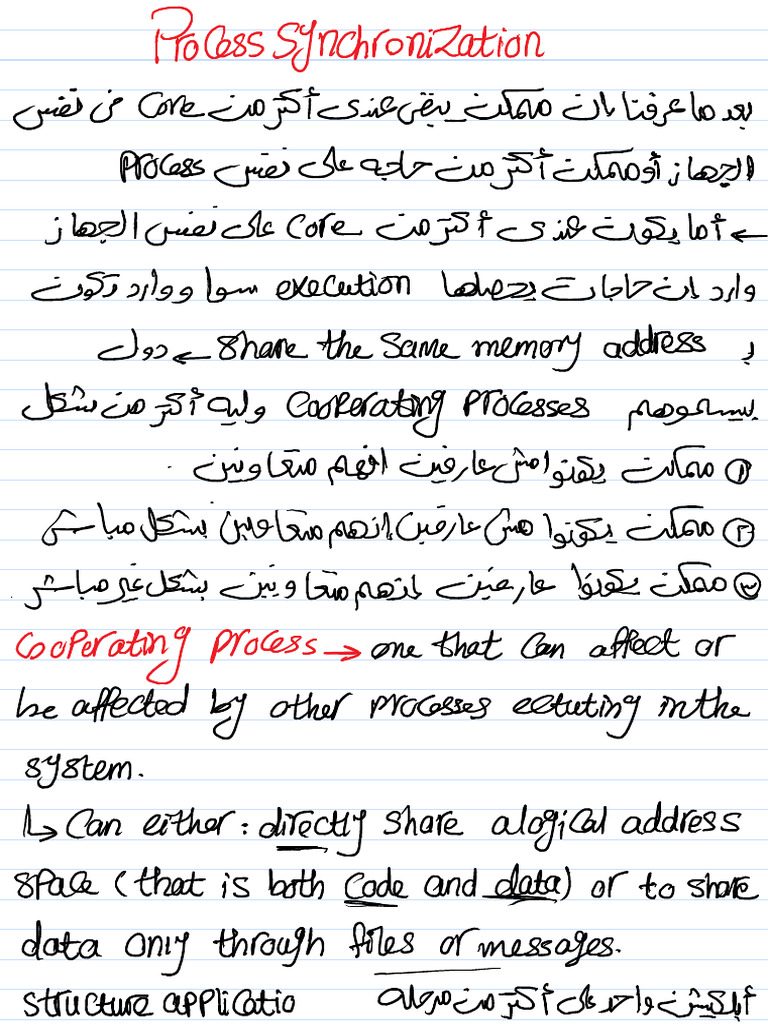 Process Synchronization
بعد ما عرفنا ان ممكن يبقى عندى أكتر من Core فى نفس
الجهاز أو ممكن أكتر من حاجه على نفس Process
← أما يكون عندى أكتر من Core على نفس الجهاز
وارد ان حاجات يحصلها execution سوا و وارد تكون
بـ share the same memory address ← دول
بيسموهم Cooperating processes وليه أكتر من شكل
① ممكن يكونوا مش عارفين انهم متعاونين .
② ممكن يكونوا مش عارفين إنهم متعاونين بشكل مباشر
③ ممكن يكونوا عارفين انهم متعاونين بشكل غير مباشر .
Cooperating process → one that can affect or
be affected by other processes ectuting in the
system.
↳ Can either : directly share alogical address
space (that is both code and data) or to share
data only through files or messages.
structure applicatio أبلكيشن واحد على أكتر من مرحله